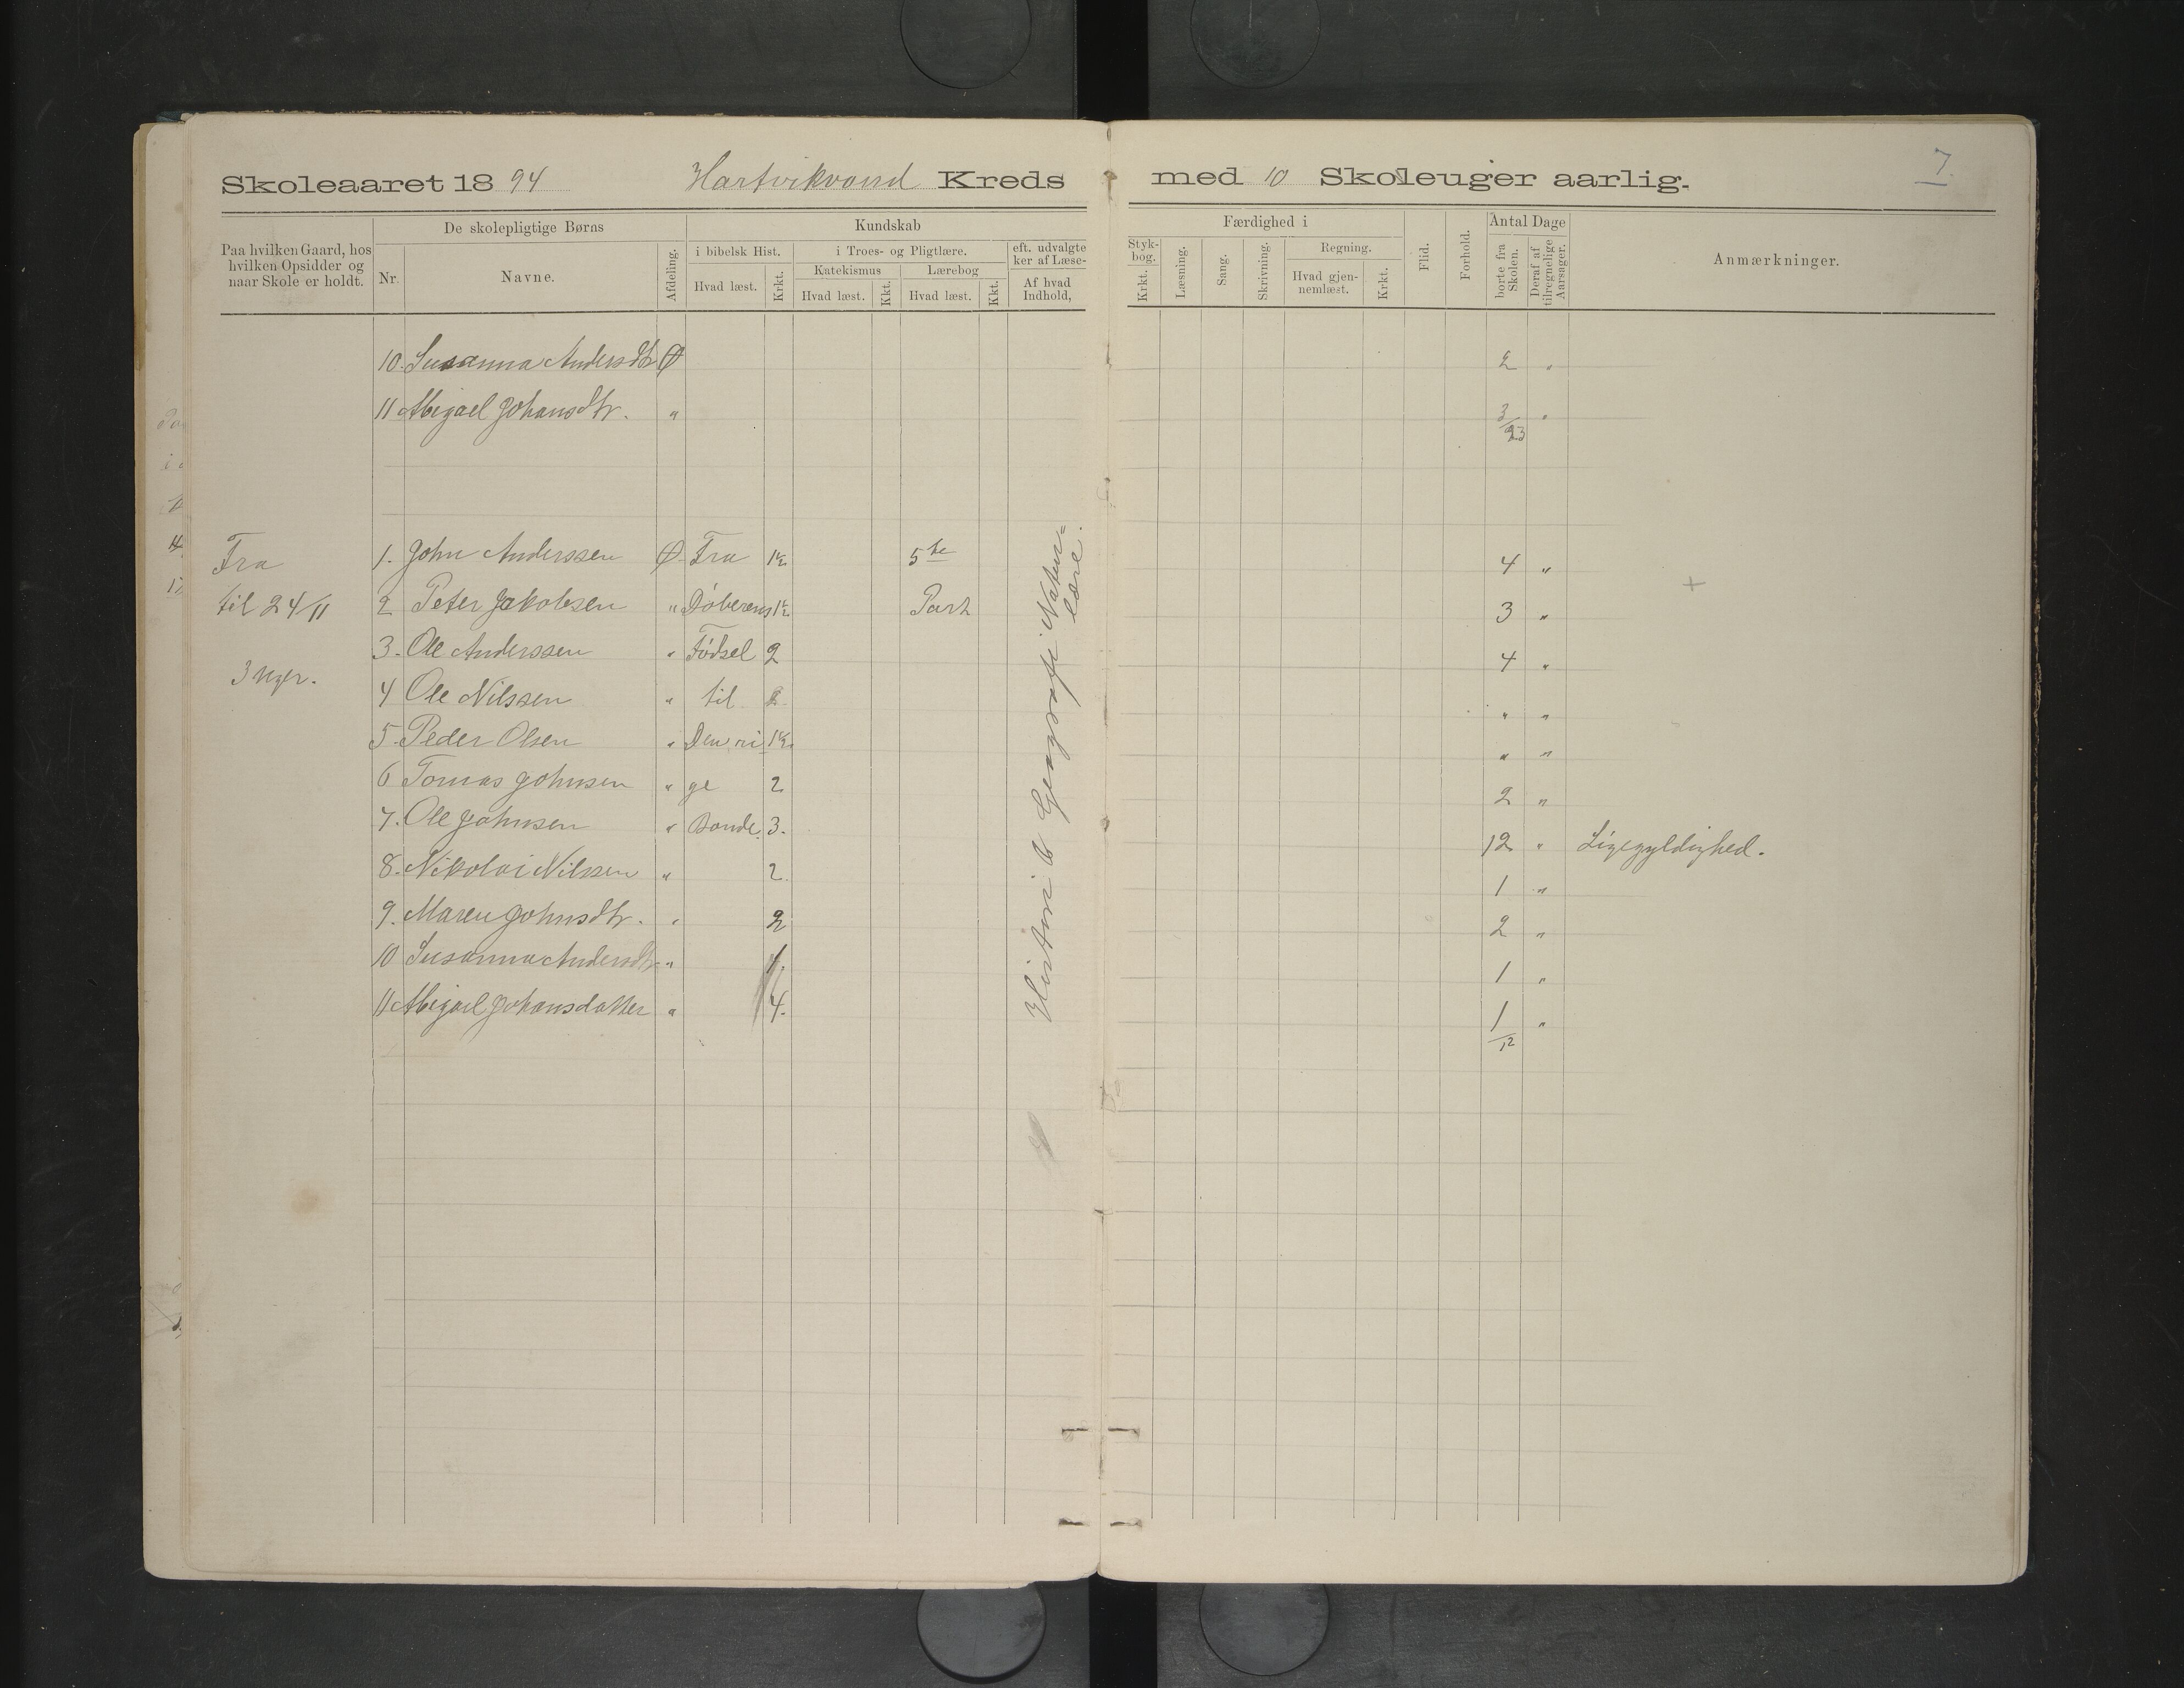 Skoleaaret 1894 Hartvikvand Kreds med 10 Skoleuger aarlig. 7.
Paa hvilken Gaard, hos hvilken Opsidder og naar Skole er holdt.
De skolepligtige Børns
Nr. Navne. Afdeling.
Kundskab
i bibelsk Hist.
Hvad læst. Krkt.
i Troes- og Pligtlære.
Katekismus
Hvad læst. Kkt.
Lærebog
Hvad læst. Kkt.
eft. udvalgte
ker af Læse-
Af hvad Indhold,
Færdighed i
Styk-
bog.
Krkt. Læsning. Sang. Skrivning.
Regning.
Hvad gjen-
nemlæst. Krkt.
Flid. Forhold.
Antal Dage
borte fra Skolen. Deraf af tilregnelige Aarsager.
Anmærkninger.
10. Susanna Andersdtr Ø 2 "
11 Abigael Johansdtr. " 3 "
23
Fra 1. John Anderssen Ø Fra 1½ 5te 4 "
til 24/11 2 Peter Jakobsen " Døberens 1½ Part 3 "
3. Ole Anderssen " Fødsel 2 4 "
3 Uger.
4 Ole Nilssen " til 2. " "
5. Peder Olsen " Den ri 1½ " "
6 Tomas Johnsen " ge 2 2 "
7. Ole Johnsen " Bonde. 3. 12 " Ligegyldighed.
8. Nikolai Nilssen " 2. 1 "
9. Maren Johnsdtr. " 2 2 "
10 Susanna Andersdtr " 1 "
11 Abigael Johansdatter " 4. 1 "
12
Historie & Geografi Natur=
lære.